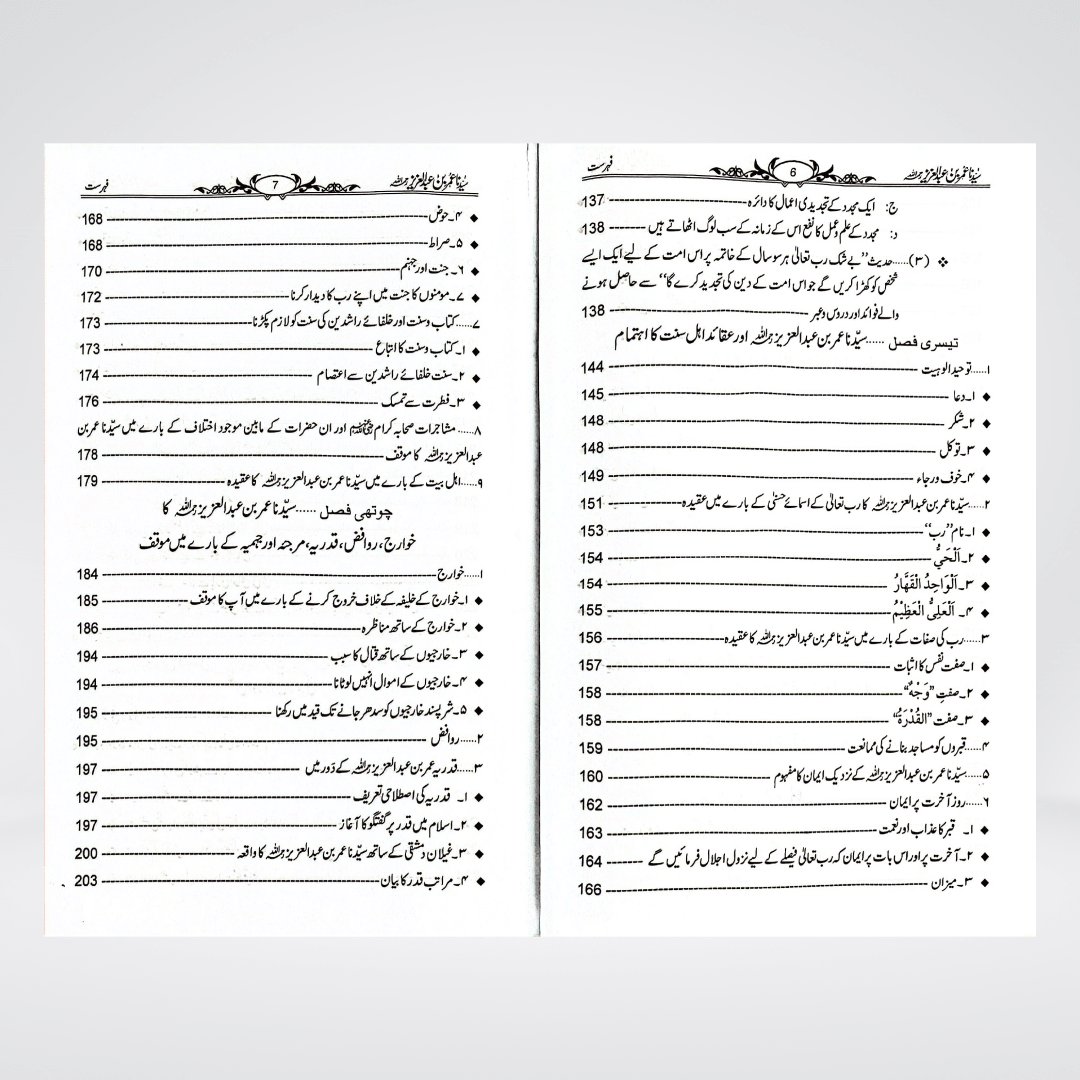 سیّدنا عمر بن عبدالعزیز رحمہ اللہ 6 فہرست
ج: ایک مجدد کے تجدیدی اعمال کا دائرہ 137
د: مجدد کے علم و عمل کا نفع اس کے زمانہ کے سب لوگ اٹھاتے ہیں 138
❖ (۳)......حدیث ’’بے شک رب تعالیٰ ہر سو سال کے خاتمہ پر اس امت کے لیے ایک ایسے
شخص کو کھڑا کریں گے جو اس امت کے دین کی تجدید کرے گا‘‘ سے حاصل ہونے
والے فوائد اور دروس و عبر 138
تیسری فصل ......سیّدنا عمر بن عبدالعزیز رحمہ اللہ اور عقائد اہل سنت کا اہتمام
۱......توحید الوہیت 144
◆ ۱۔دعا 145
◆ ۲۔شکر 148
◆ ۳۔توکل 148
◆ ۴۔خوف ورجاء 149
۲......سیّدنا عمر بن عبدالعزیز رحمہ اللہ کا رب تعالیٰ کے اسمائے حسنیٰ کے بارے میں عقیدہ 151
◆ ۱۔نام ’’رب‘‘ 153
◆ ۲۔اَلْحَيُّ 154
◆ ۳۔اَلْوَاحِدُ الْقَهَّارُ 154
◆ ۴۔ اَلْعَلِیُّ الْعَظِيْمُ 155
۳......رب کی صفات کے بارے میں سیّدنا عمر بن عبدالعزیز رحمہ اللہ کا عقیدہ 156
◆ ۱۔صفت نفس کا اثبات 157
◆ ۲۔صفتِ ”وَجْهٌ“ 158
◆ ۳۔صفت ”القُدْرَةُ“ 158
۴......قبروں کو مساجد بنانے کی ممانعت 159
۵......سیّدنا عمر بن عبدالعزیز رحمہ اللہ کے نزدیک ایمان کا مفہوم 160
۶......روز آخرت پر ایمان 162
◆ ۱۔ قبر کا عذاب اور نعمت 163
◆ ۲۔آخرت پر اور اس بات پر ایمان کہ رب تعالیٰ فیصلے کے لیے نزول اجلال فرمائیں گے 164
◆ ۳۔میزان 166
سیّدنا عمر بن عبدالعزیز رحمہ اللہ 7 فہرست
◆ ۴۔حوض 168
◆ ۵۔صراط 168
◆ ۶۔جنت اور جہنم 170
◆ ۷۔مومنوں کا جنت میں اپنے رب کا دیدار کرنا 172
۷......کتاب وسنت اور خلفائے راشدین کی سنت کو لازم پکڑنا 173
◆ ۱۔کتاب وسنت کا اتباع 173
◆ ۲۔سنت خلفائے راشدین سے اعتصام 174
◆ ۳۔فطرت سے تمسک 176
۸......مشاجرات صحابہ کرام رضی اللہ عنہم اور ان حضرات کے مابین موجود اختلاف کے بارے میں سیّدنا عمر بن
عبدالعزیز رحمہ اللہ کا موقف 178
۹......اہل بیت کے بارے میں سیّدنا عمر بن عبدالعزیز رحمہ اللہ کا عقیدہ 179
چوتھی فصل ......سیّدنا عمر بن عبدالعزیز رحمہ اللہ کا
خوارج، روافض، قدریہ، مرجئہ اور جہمیہ کے بارے میں موقف
۱......خوارج 184
◆ ۱۔خوارج کے خلیفہ کے خلاف خروج کرنے کے بارے میں آپ کا موقف 185
◆ ۲۔خوارج کے ساتھ مناظرہ 186
◆ ۳۔خارجیوں کے ساتھ قتال کا سبب 194
◆ ۴۔خارجیوں کے اموال انہیں لوٹانا 194
◆ ۵۔شر پسند خارجیوں کو سدھر جانے تک قید میں رکھنا 195
۲......روافض 195
۳......قدریہ عمر بن عبدالعزیز رحمہ اللہ کے دَور میں 197
◆ ۱۔ قدریہ کی اصطلاحی تعریف 197
◆ ۲۔اسلام میں قدر پر گفتگو کا آغاز 197
◆ ۳۔غیلان دمشقی کے ساتھ سیّدنا عمر بن عبدالعزیز رحمہ اللہ کا واقعہ 200
◆ ۴۔مراتب قدر کا بیان 203